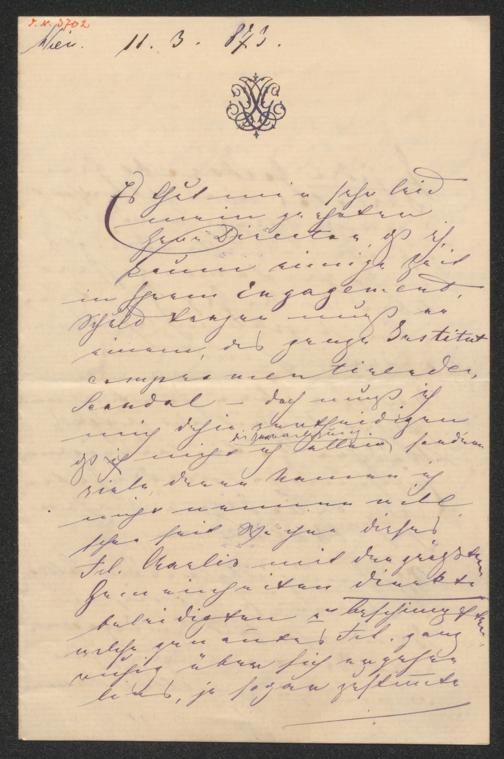 I. N. 3702
Wien. 11. 3. 873.
Es thut mir sehr leid
mein geehrter
Herr Director, daß ich
kaum einige Zeit
in Ihrem Engagement,
Schuld tragen muß an
einem, das ganze Institut
compromentirenden,
Scandal – doch muß ich
mich dahin vertheidigen
daß ich nicht allein, sondern
viele deren Namen ich
nicht nennen will
schon seit Wochen dieses
Frl. Charlis mit den größten
Gemeinheiten direkte
beleidigten u beschimpften,
welche genanntes Frl. ganz
ruhig über sich ergehen
ließ, ja sogar